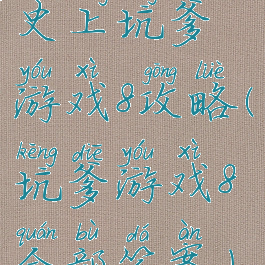 史上坑爹
yóu xì gōng lüè
游戏8攻略(
kēng diē yóu xì
坑爹游戏8
quán bù dá àn
全部答案)